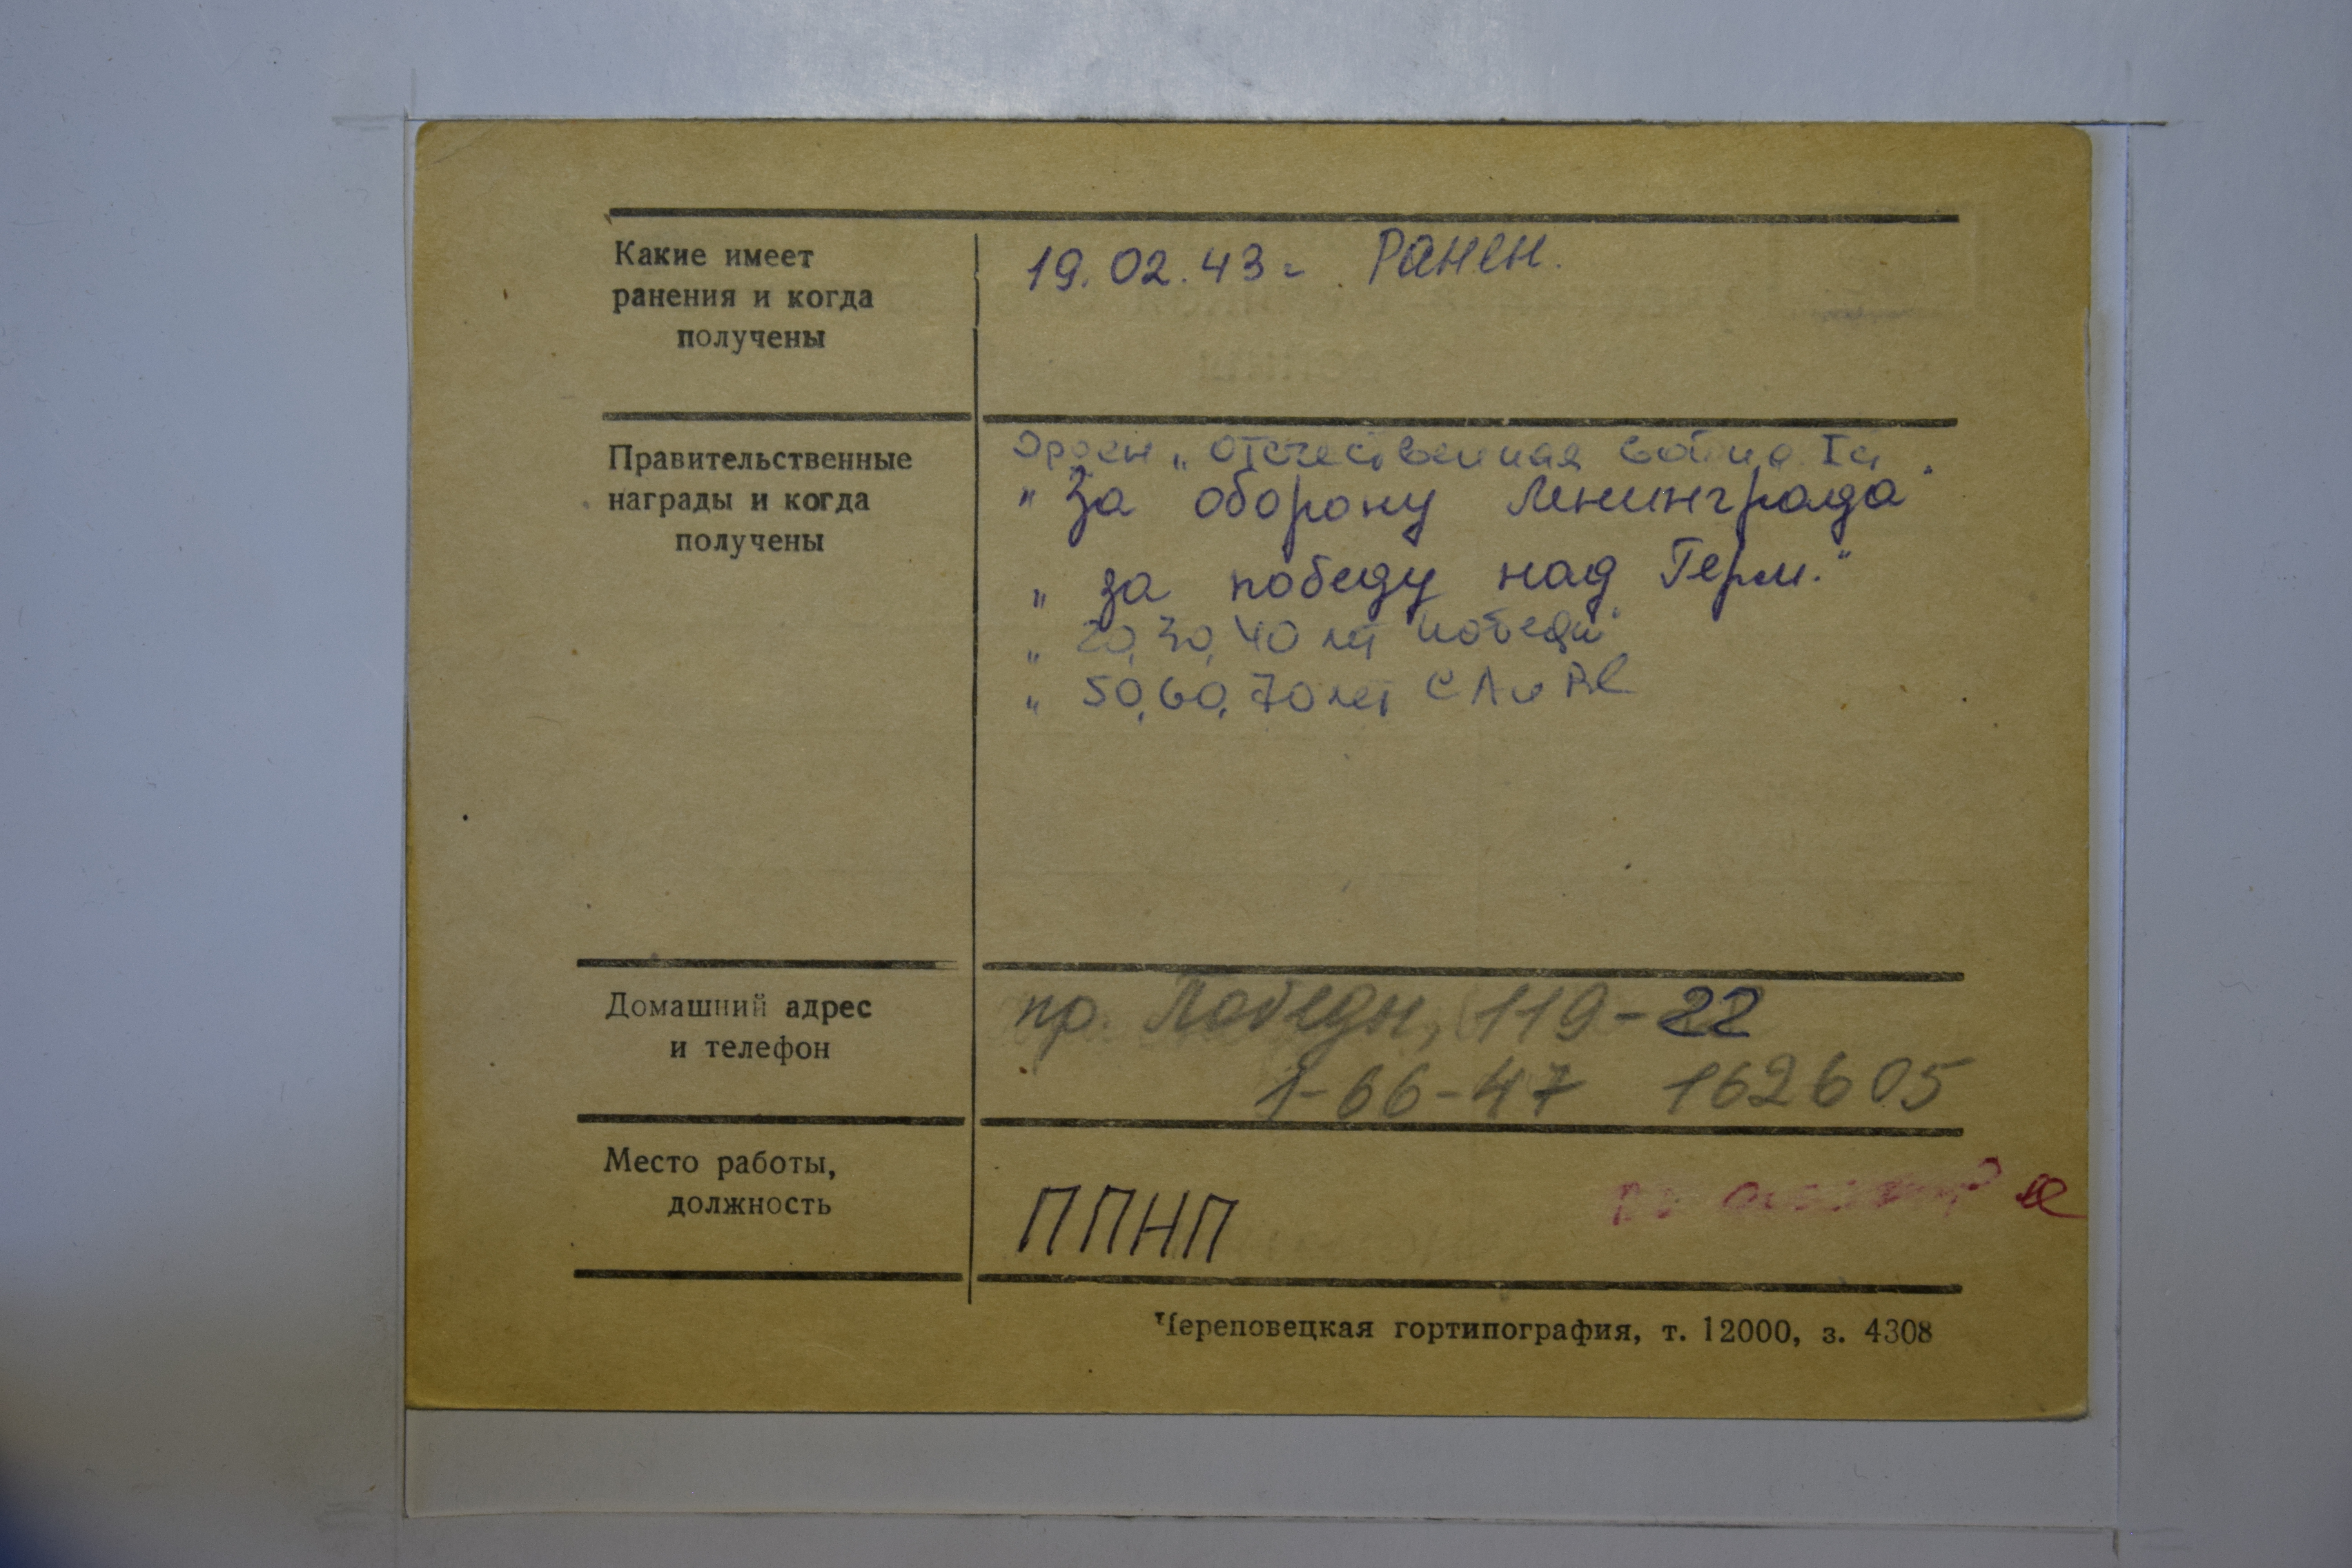 Какие имеет
ранения и когда
получены
19.02.43г. Ранен.
Правительственные
награды и когда
получены
Орден „Отечественная война I ст.
" За оборону Ленинграда"
„ За победу над Герм."
„ 20, 30, 40 лет победы"
„ 50, 60, 70 лет СА и
Домашний адрес
и телефон
пр. Победы, 119-22
1-66-47 162605
Место работы,
должность
ППНП
Череповецкая гортипография, т. 12000, з. 4308